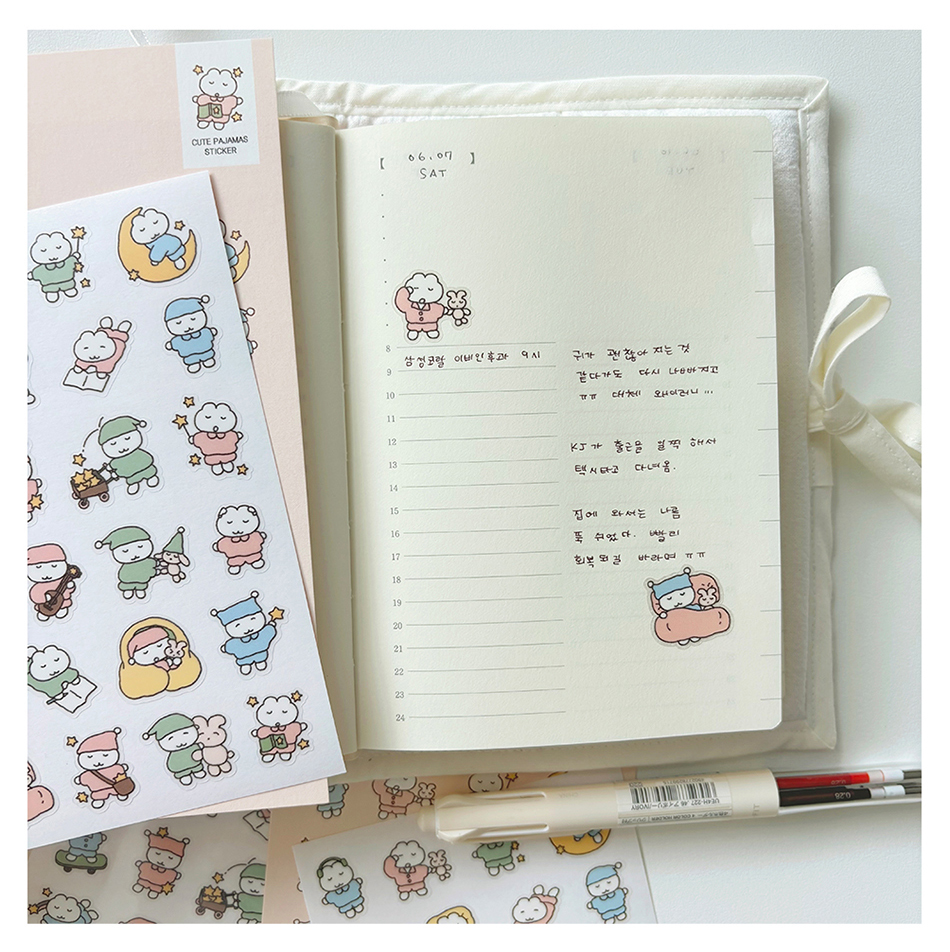 CUTE PAJAMAS
STICKER
[ 06.07 ]
SAT
8
삼성코랄 이비인후과 9시
9
10
11
12
13
14
15
16
17
18
19
20
21
22
23
24
귀가 괜찮아 지는 것
같다가도 다시 나빠지고
ㅠㅠ 대체 왜이러니...
KJ가 출근을 일찍 해서
택시타고 다녀옴.
집에 와서는 나름
푹 쉬었다. 빨리
회복되길 바라며 ㅠㅠ
0.28